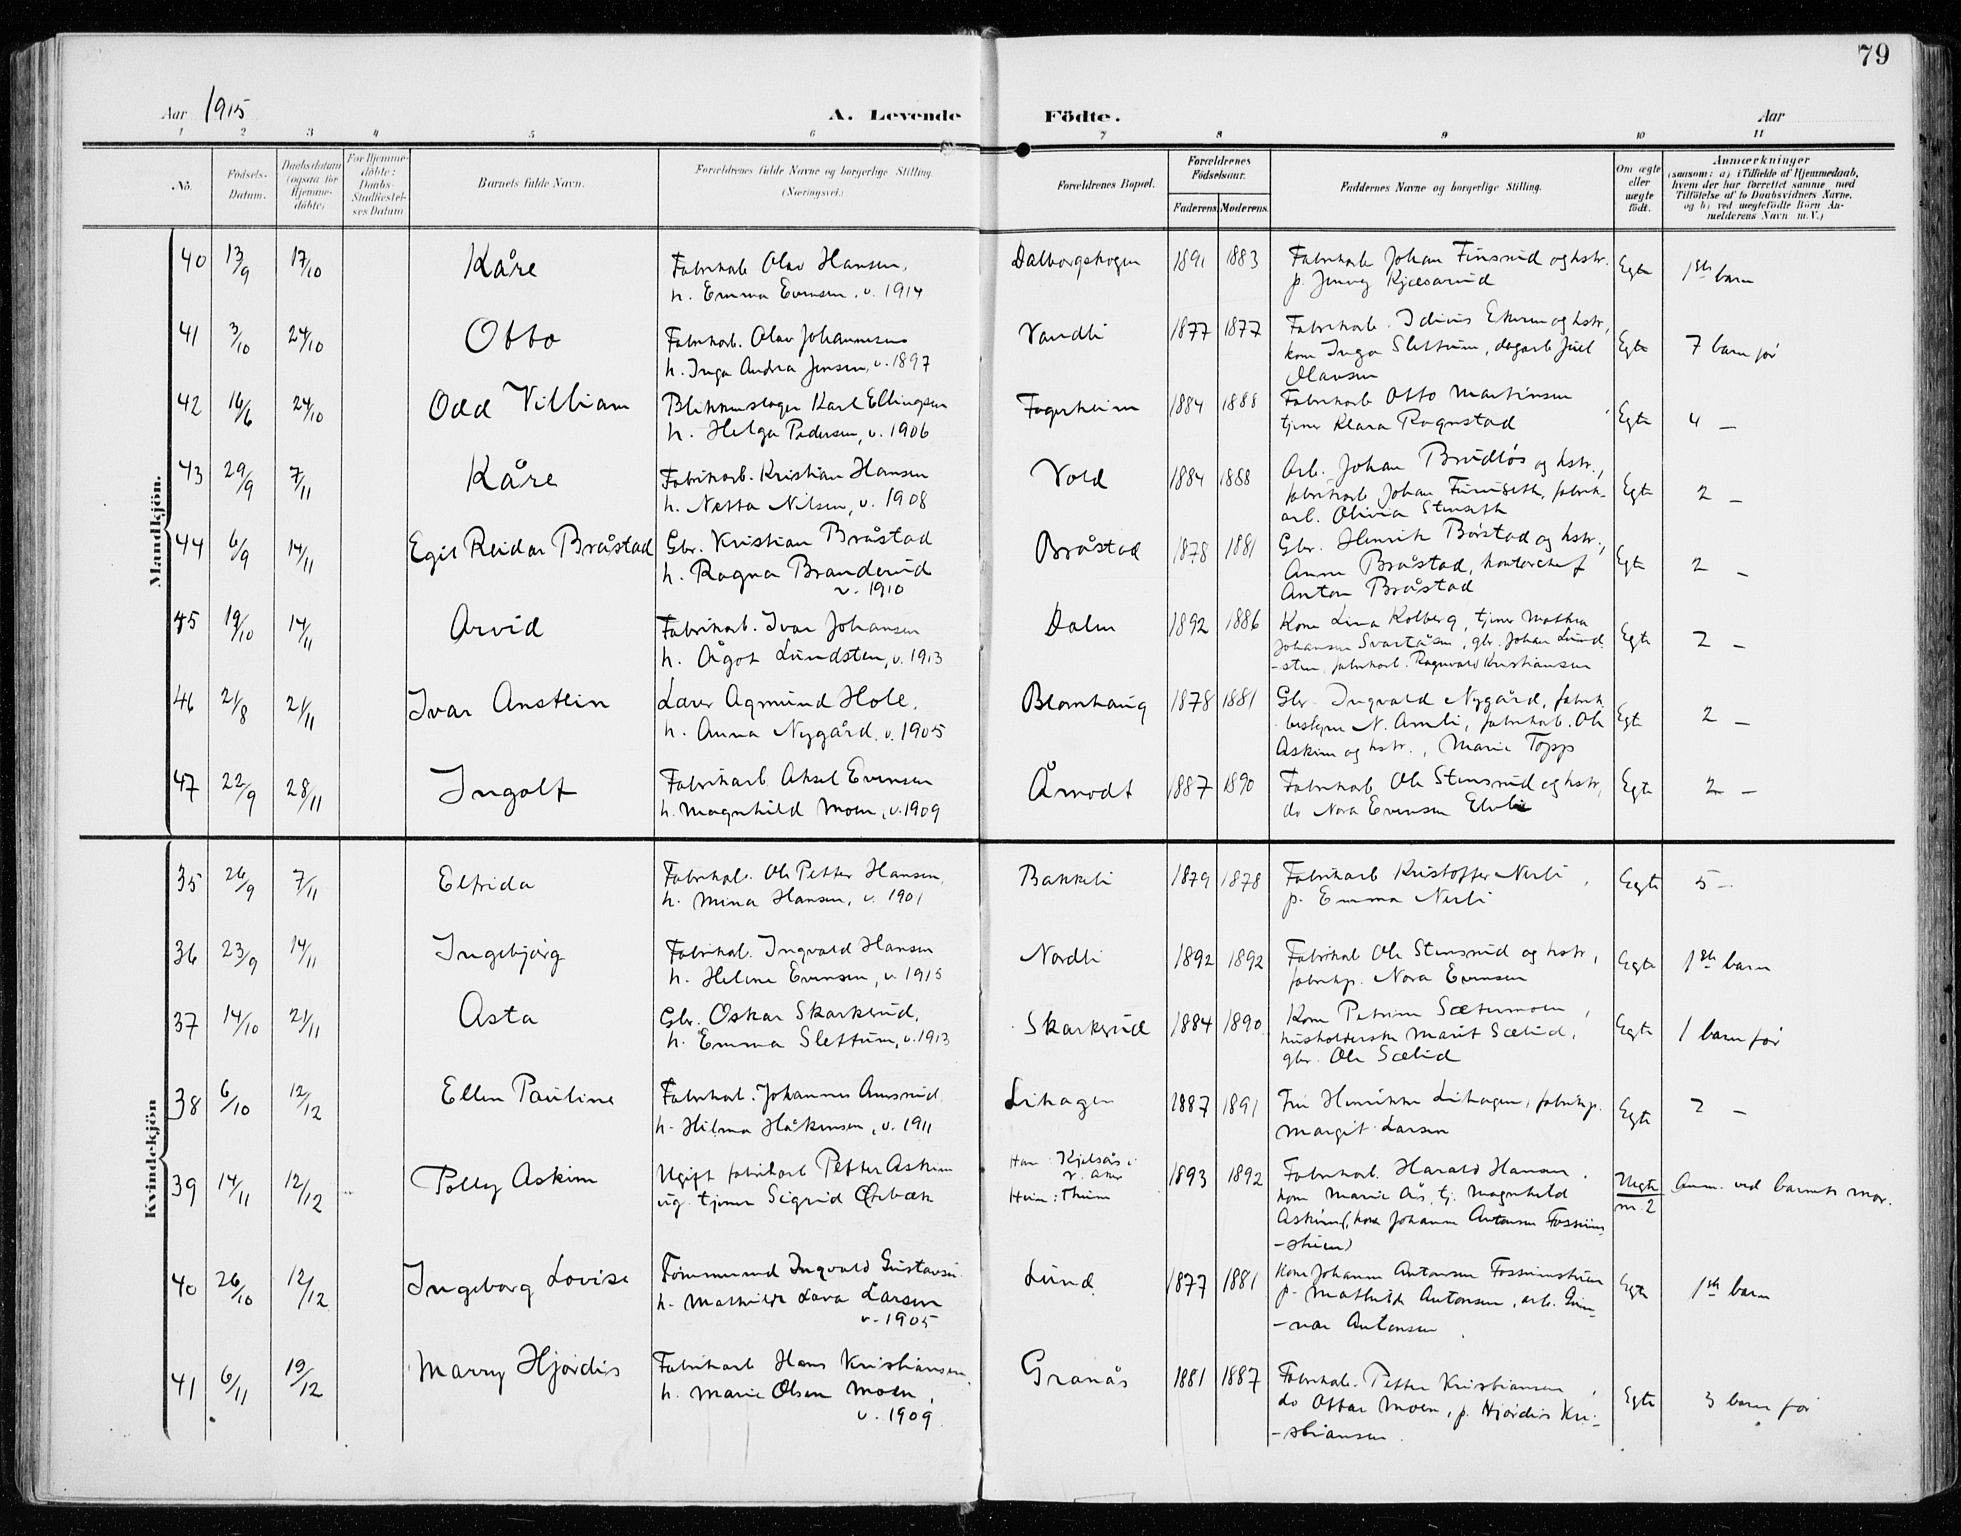 79
Aar 1915
A. Levende Födte.
Aar
1 2 3 4 5 6 7 8 9 10 11
No.
Födsels-
Datum.
Daabsdatum
(ogsaa for
Hjemme-
döbte)
For Hjemme-
döbte:
Daabs-
Stadfæstel-
ses Datum
Barnets fulde Navn.
Forældrenes fulde Navne og borgerlige Stilling.
(Næringsvei.)
Forældrenes Bopæl.
Forældrenes
Födselsaar.
Faderens Moderens
Faddernes Navne og borgerlige Stilling.
Om ægte
eller
uægte
født.
Anmærkninger
(saasom: a) i Tilfælde af Hjemmedaab,
hvem der har forrettet samme med
Tilföielse af to Daabsvidners Navne,
og b) ved uægtefödte Börn An-
melderens Navn m.V.)
Mandkjön.
40 13/9 17/10 Kåre
Fabrikarb. Olav Hansen,
h. Emma Evensen, v. 1914
Dalborgshogen 1891 1883
Fabrikarb. Johan Finsrud og hstr.
p. Jenny
Egte 1ste barn
41 3/10 24/10 Otto
Fabrikarb. Olav Johannesen
h. Inga Andrea Jensen, v. 1897
Vandli 1877 1877
Fabrikarb. Ekern og hstr,
kone Inga Slettum, dagarb Juel
Hansen
Egte 7 barn før
42 16/6 24/10 Odd William
Blikkenslager Karl Ellingsen
h. Helga Pedersen, v. 1906
Fagerheim 1884 1888
Fabrikarb Otto Martinsen
tjener Klara Rognstad
Egte 4 —
43 29/9 7/11 Kåre
Fabrikarb. Kristian Hansen
h. Netta Nilsen, v. 1908
Vold 1884 1888
Arb. Johan Brudløs og hstr.,
fabrikarb Johan Furuseth, fabrik-
arb. Olivia Stenseth
Egte 2 —
44 6/9 14/11 Egil Reidar Bråstad
Gbr. Kristian Bråstad
h. Ragna Branderud
v. 1910
Bråstad 1878 1881
Gbr. Henrik Børstad og hstr.,
Anne Bråstad, kontorchef
Anton Bråstad
Egte 2 —
45 19/10 14/11 Arvid
Fabrikarb. Ivar Johansen
h. Ågot Lundsten, v. 1913
Dalen 1892 1886
Kone Lina Kolberg, tjener Mathea
Johansen Svartåsen, gbr. Johan Lund-
-sten, fabrikarb. Ragnvald Kristiansen
Egte 2 —
46 21/8 21/11 Ivar Anstein
Lærer Agmund Hole.
h. Anna Nygård. v. 1905
Blomhaug 1878 1881
Gbr. Ingvald Nygård, fabrik-
bestyrer N. Amli, fabrikarb. Ole
Askim og hstr., Marie Topp
Egte 2 —
47 22/9 28/11 Ingolf
Fabrikarb. Aksel Evensen
h. Magnhild Moen, v. 1909
Åmodt 1887 1890
Fabrikarb Ole Stensrud og hstr,
do Nora Evensen Elvli
Egte 2 —
Kvindekjön
35 26/9 7/11 Elfrida
Fabrikarb. Ole Petter Hansen,
h. Mina Hansen, v. 1901
Bakkeli 1879 1878
Fabrikarb Kristoffer Nerli,
p. Emma Nerli
Egte 5 —
36 23/9 14/11 Ingebjørg
Fabrikarb. Ingvald Hansen
h. Helene Evensen, v. 1915
Nordli 1892 1892
Fabrikarb Ole Stensrud og hstr,
fabrikp. Nora Evensen
Egte 1ste barn
37 14/10 21/11 Asta
Gbr. Oskar Skarkerud,
h. Emma Slettum, v. 1913
Skarkerud 1884 1890
Kone Petrine Sætermoen,
husholderske Marit Sælid,
gbr. Ole Sælid
Egte 1 barn før
38 6/10 12/12 Ellen Pauline
Fabrikarb. Johannes Amsrud.
h. Hilma Håkensen, v. 1911
Lihagen 1887 1891
Fru Henrikke Lihagen, fabrikp.
Margit Larsen
Egte 2 —
39 14/11 12/12 Polly Askim
Ugift fabrikarb Petter Askim
ug. tjener Sigrid Ørbæk
Han: Kjelsås i
v. Aker
Hun: Thune
1893 1892
Fabrikarb. Harald Hansen,
kone Marie Ås, tj. Magnhild
Askim (kone Johanne Antonsen Fossum-
-stuen)
Uegte
m. 2
Anm. ved barnets mor.
40 26/10 12/12 Ingeborg Lovise
Tømmermand Ingvald Gustavsen
h. Mathilde Lava Larsen
v. 1905
Lund 1877 1881
Kone Johanne Antonsen Fossumstuen
p. Mathilde Antonsen, arb. Gun-
-nar Antonsen
Egte 1ste barn
41 6/11 19/12 Marry Hjørdis
Fabrikarb Hans Kristiansen,
h. Marie Olsen Moen,
v. 1909.
Granås 1881 1887
Fabrikarb. Petter Kristiansen,
do Ottar Moen, p. Hjørdis Kri-
-stiansen.
Egte 3 barn før